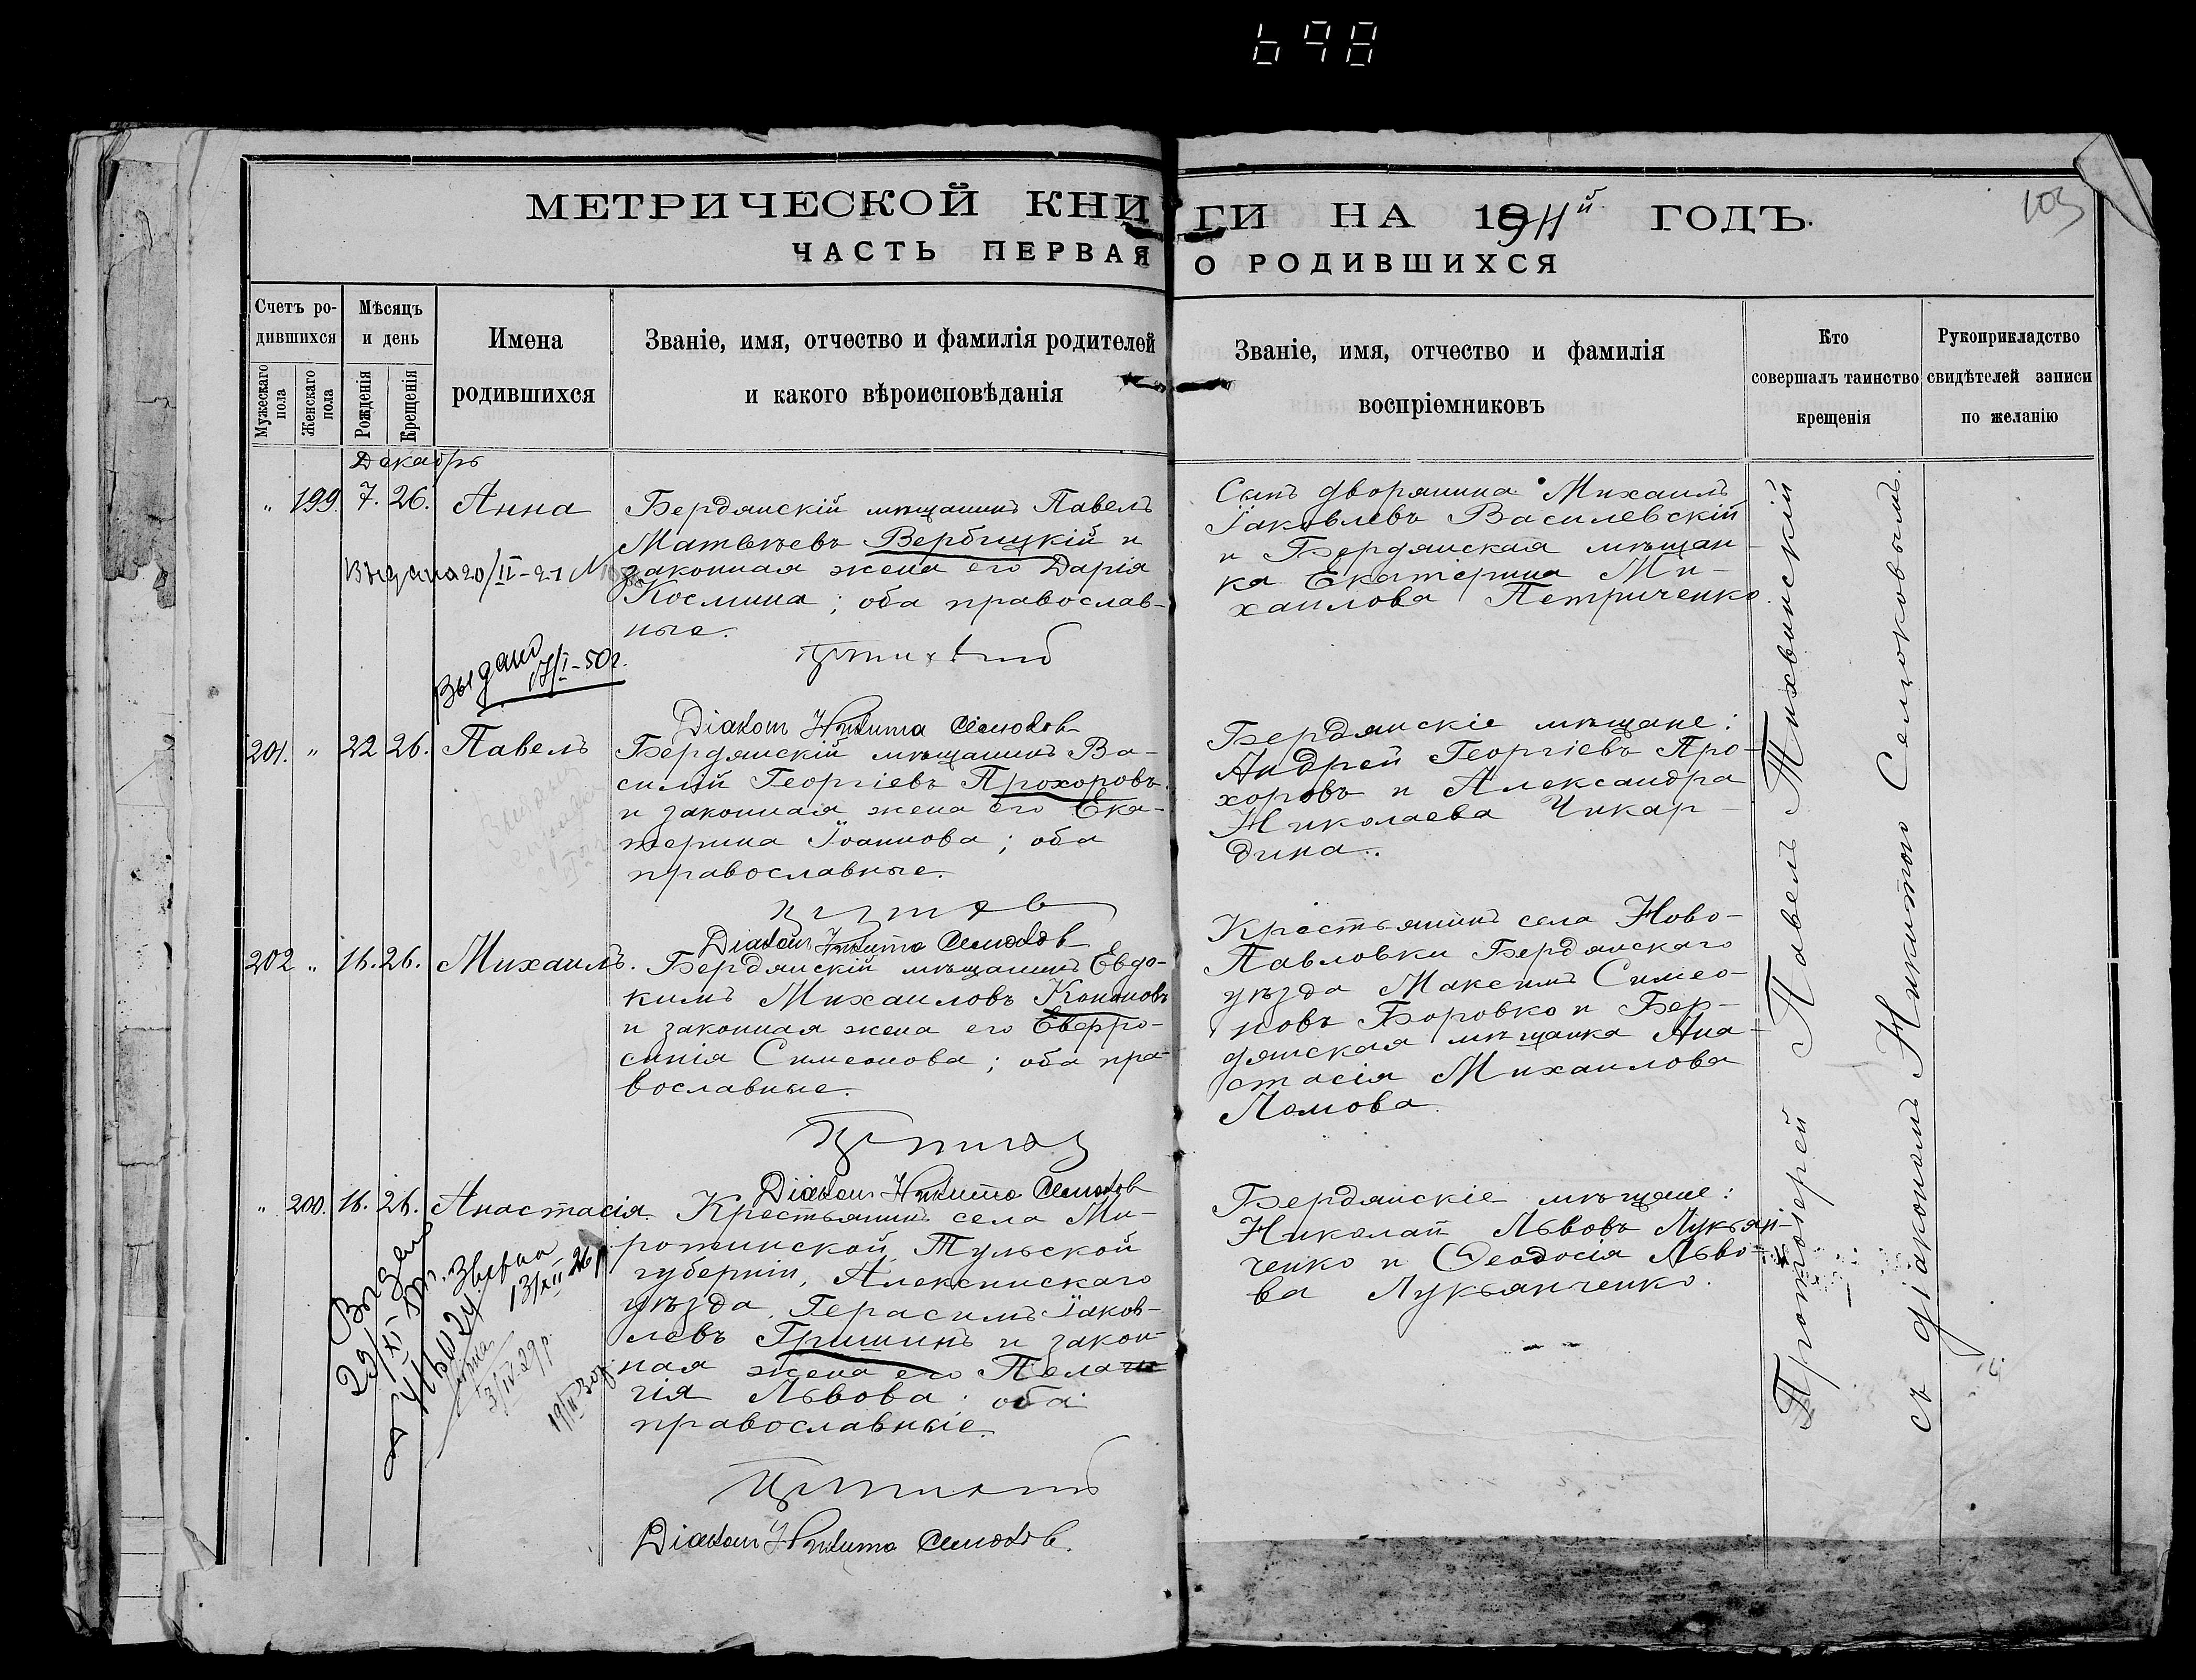 698
103
МЕТРИЧЕСКОЙ КНИГИ НА 1911й ГОДЪ.
ЧАСТЬ ПЕРВАЯ О РОДИВШИХСЯ
Счетъ ро-
дившихся
Мужескаго пола
Женскаго пола
Мѣсяцъ
и день
Рожденія
Крещенія
Имена
родившихся
Званіе, имя, отчество и фамилія родителей
и какого вѣроисповѣданія
Званіе, имя, отчество и фамилія
воспріемниковъ
Кто
совершалъ таинство
крещенія
Рукоприкладство
свидѣтелей записи
по желанію
Декабрь
" 199. 7. 26. Анна
Бердянскій мѣщанинъ Павелъ
Матвѣевъ Вербицкій и
законная жена его Дарія
Космина; оба православ-
ные.
Выдана 20/II-21 N
Сынъ дворянина Михаилъ
Іаковлевъ Василевскій
и Бердянская мѣщан-
ка Екатерина Ми-
хаилова Петриченко.
Выдано
17/I-50г.
Діаконъ Никита Селюковъ
201. " 22 26. Павелъ
Бердянскій мѣщанинъ Ва-
силій Георгіевъ Прохоровъ
и законная жена его Ека-
терина Іоаннова; оба
православные.
Бердянскіе мѣщане:
Андрей Георгіевъ Про-
хоровъ и Александра
Николаева Чикар-
дина.
Діаконъ Никита Селюковъ
202 " 16. 26. Михаилъ.
Бердянскій мѣщанинъ Евдо-
кимъ Михаиловъ Кононовъ
и законная жена его Евфро-
синія Симеонова; оба пра-
вославные.
Крестьянинъ села Ново-
Павловки Бердянскаго
уѣзда Максимъ Симео-
новъ Боровко и Бер-
дянская мѣщанка Ана-
стасія Михаилова
Ломова.
Діаконъ Никита Селюковъ
" 200. 16. 26. Анастасія.
Крестьянинъ села Ми-
ротинской, Тульской
губерніи, Алексинскаго
уѣзда, Герасимъ Іаков-
левъ Гришинъ и закон-
ная жена его Пела
гія Львова; оба
православные.
13/XII 26 р
3/IV-29р.
Бердянскіе мѣщане:
Николай Львовъ Лукьян-
ченко и Ѳеодосія Льво-
ва Лукьянченко.
Діаконъ Никита Селюковъ.
Протоіерей Павелъ Тихвинскій
съ діакономъ Никитою Селюковымъ.